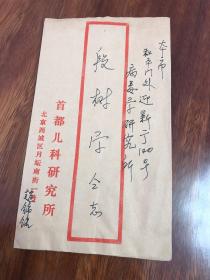 本市
和平门外迎新街100号
病毒学研究所
段树学同志
首都儿科研究所
北京西城区月坛南街